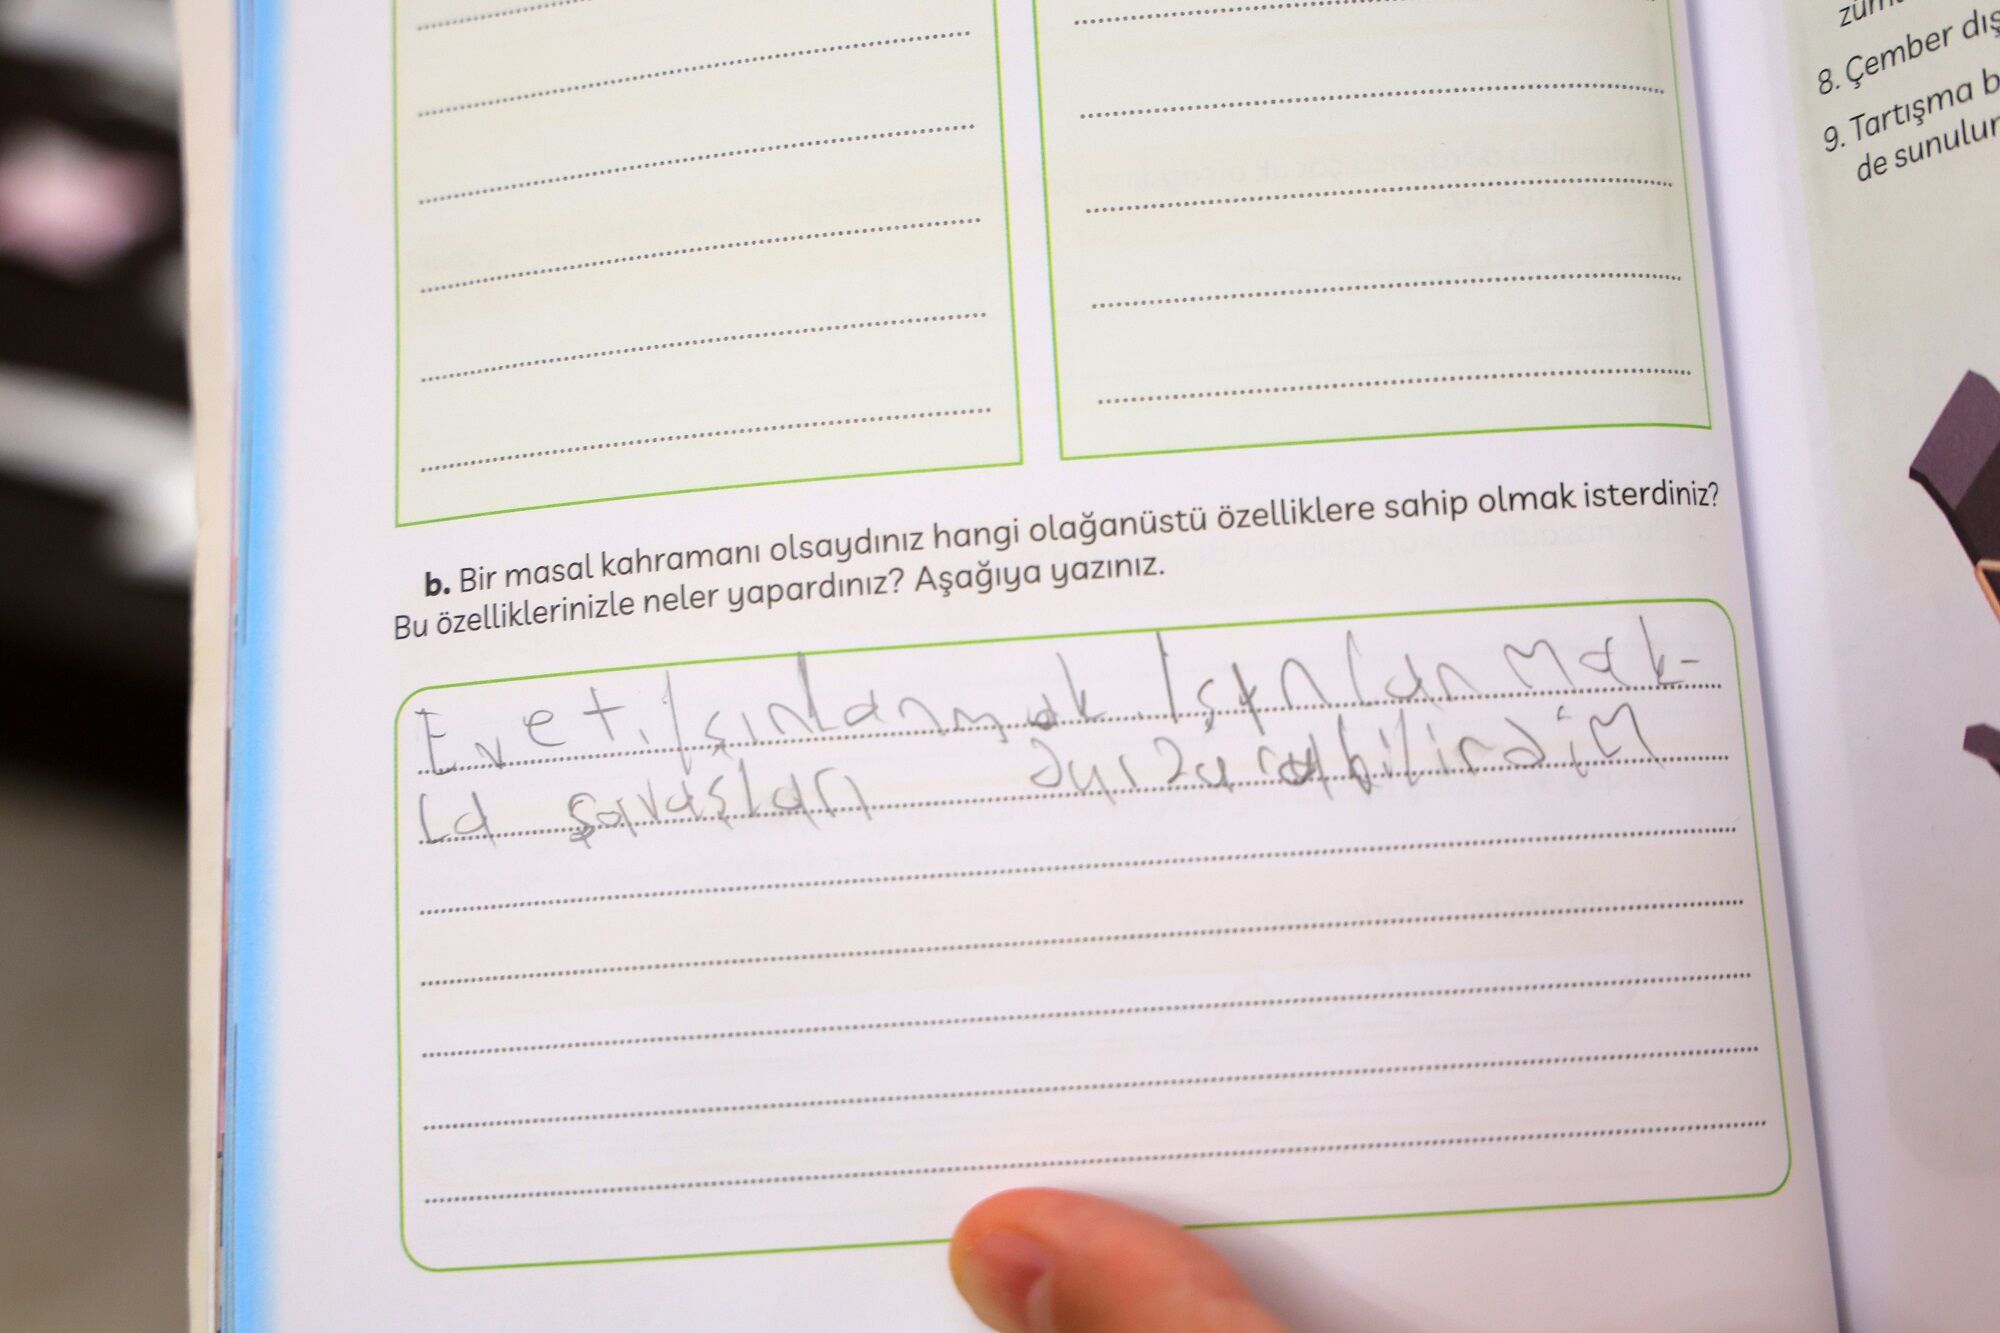 b. Bir masal kahramanı olsaydınız hangi olağanüstü özelliklere sahip olmak isterdiniz?
Bu özelliklerinizle neler yapardınız? Aşağıya yazınız.
Evet. Işınlanmak. Işınlanmak-
la savaşları durdurabilirdim
8. Çember dış
9. Tartışma b
de sunulur